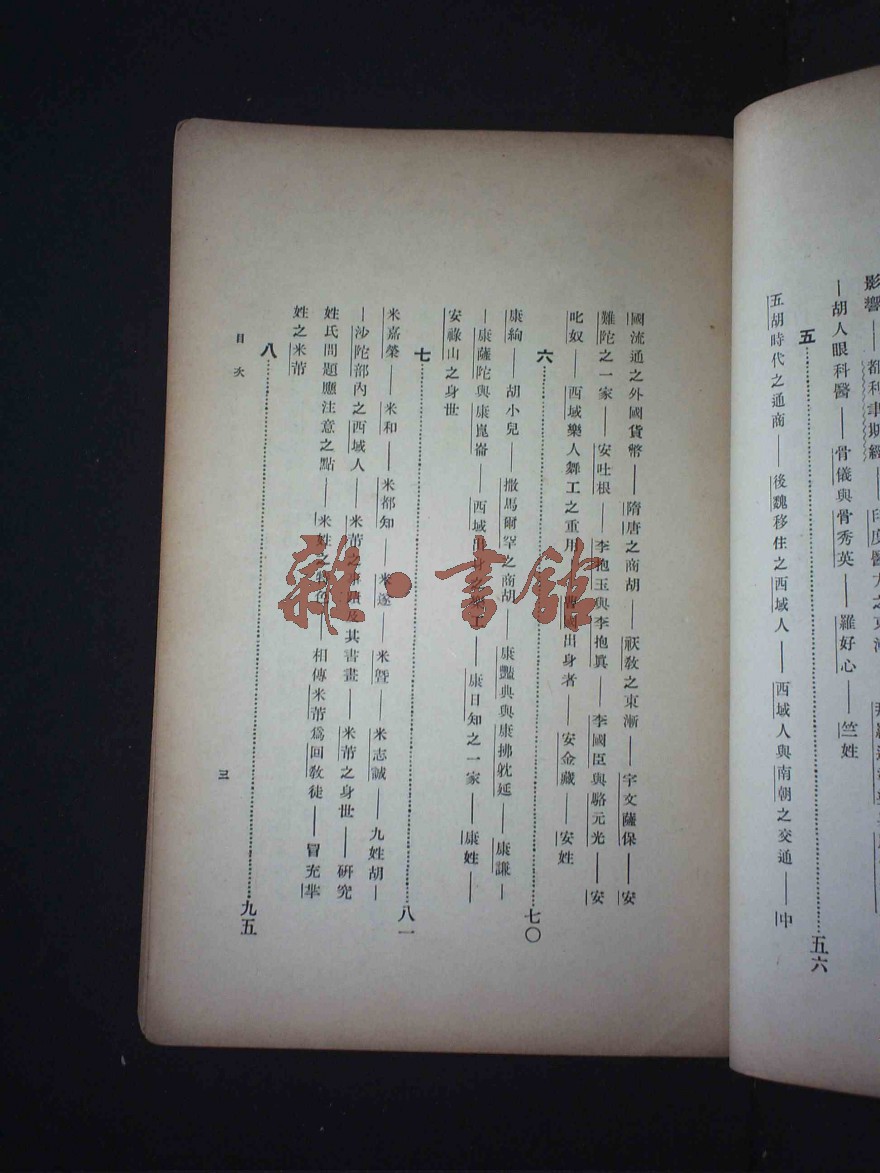 影響——都利聿斯經——印度醫方之東
——胡人眼科醫——骨儀與骨秀英——羅好心——竺姓
五……五六
五胡時代之通商——後魏移住之西域人——西域人與南朝之交通——中
國流通之外國貨幣——隋唐之商胡——祆教之東漸——宇文薩保——安
難陀之一家——安吐根——李抱玉與李抱眞——李國臣與駱元光——安
叱奴——西域樂人舞工之重用——出身者——安金藏——安姓
六……七〇
康絢——胡小兒——撒馬爾罕之商胡——康豔典與康拂躭延——康謙—
—康薩陀與康崑崙——西域出身之樂工——康日知之一家——康姓——
安祿山之身世
七……八一
米嘉榮——米和——米都知——米遂——米暨——米志誠——九姓胡—
—沙陀部內之西域人——米芾之事蹟及其書畫——米芾之身世——研究
姓氏問題應注意之點——米姓之特色——相傳米芾爲回教徒——冒充羋
姓之米芾
八……九五
目次
三
雜·書館